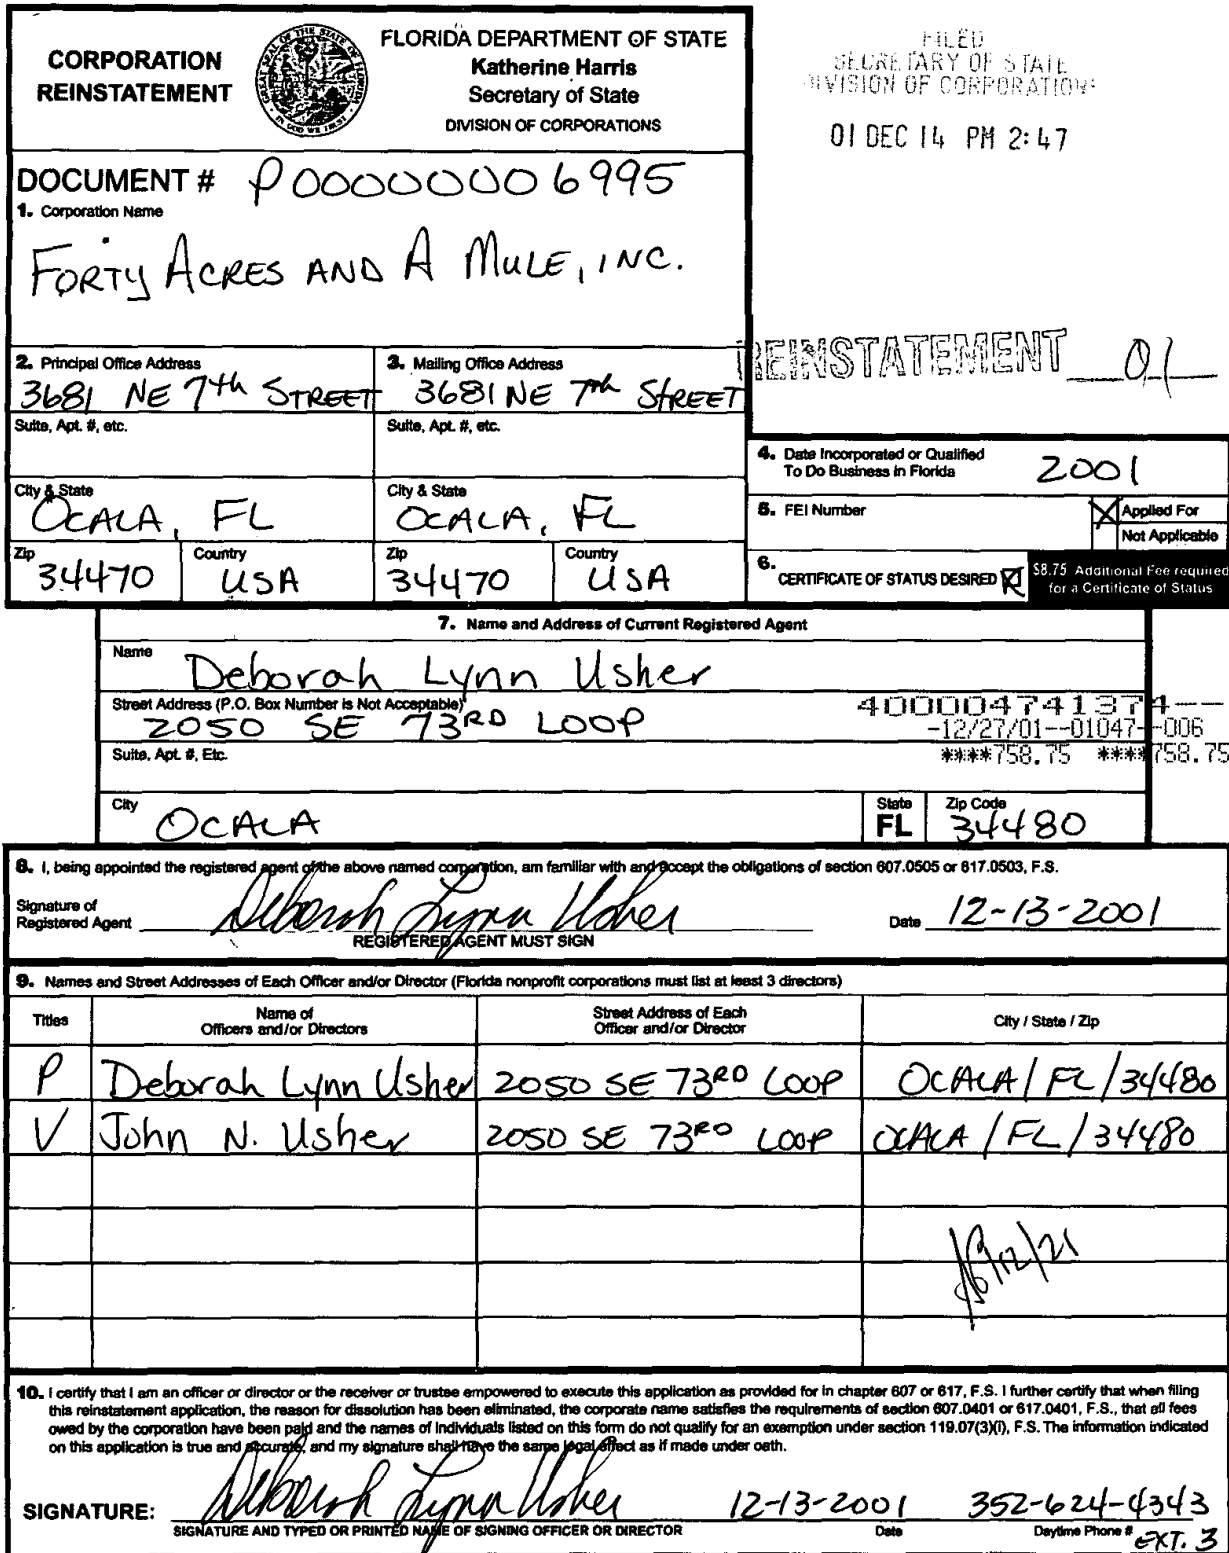 CORPORATION
REINSTATEMENT
FLORIDA DEPARTMENT OF STATE
Katherine Harris
Secretary of State
DIVISION OF CORPORATIONS
FILED
SECRETARY OF STATE
DIVISION OF CORPORATIONS
01 DEC 14 PM 2:47
DOCUMENT # P00000006995
1. Corporation Name
FORTY ACRES AND A MULE, INC.
REINSTATEMENT 01
2. Principal Office Address
3681 NE 7th STREET
3. Mailing Office Address
3681 NE 7th STREET
Suite, Apt. #, etc.
Suite, Apt. #, etc.
City & State
OCALA, FL
City & State
OCALA, FL
Zip
34470
Country
USA
Zip
34470
Country
USA
4. Date Incorporated or Qualified
To Do Business in Florida
2001
5. FEI Number
X Applied For
Not Applicable
6. CERTIFICATE OF STATUS DESIRED X
$8.75 Additional Fee required
for a Certificate of Status
7. Name and Address of Current Registered Agent
Name
Deborah Lynn Usher
Street Address (P.O. Box Number is Not Acceptable)
2050 SE 73RD LOOP
400004741374--
-12/27/01--01047--006
****758.75 ****758.75
Suite, Apt. #, Etc.
City
OCALA
State
FL
Zip Code
34480
8. I, being appointed the registered agent of the above named corporation, am familiar with and accept the obligations of section 607.0505 or 617.0503, F.S.
Signature of
Registered Agent
Deborah Lynn Usher
Date 12-13-2001
REGISTERED AGENT MUST SIGN
9. Names and Street Addresses of Each Officer and/or Director (Florida nonprofit corporations must list at least 3 directors)
Titles
Name of
Officers and/or Directors
Street Address of Each
Officer and/or Director
City / State / Zip
P Deborah Lynn Usher 2050 SE 73RD LOOP OCALA/FL/34480
V John N. Usher 2050 SE 73RD LOOP OCALA/FL/34480
12/21
10. I certify that I am an officer or director or the receiver or trustee empowered to execute this application as provided for in chapter 607 or 617, F.S. I further certify that when filing
this reinstatement application, the reason for dissolution has been eliminated, the corporate name satisfies the requirements of section 607.0401 or 617.0401, F.S., that all fees
owed by the corporation have been paid and the names of individuals listed on this form do not qualify for an exemption under section 119.07(3)(i), F.S. The information indicated
on this application is true and accurate, and my signature shall have the same legal effect as if made under oath.
SIGNATURE: Deborah Lynn Usher 12-13-2001 352-624-4343
SIGNATURE AND TYPED OR PRINTED NAME OF SIGNING OFFICER OR DIRECTOR
Date
Daytime Phone #
EXT. 3